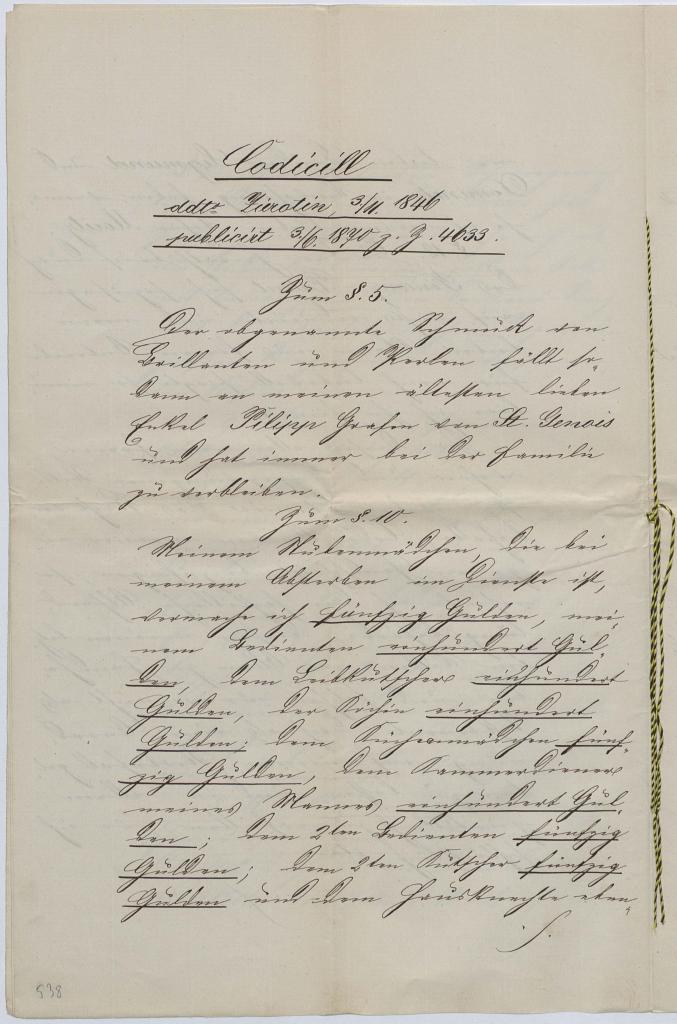 Codicill
ddto Zierotin, 3/11. 1846
publicirt 3/6. 1870 z. Z. 4633.
Zum §. 5.
Der obgenannte Schmuck von
Brillanten und Perlen fällt so-
dann an meinen ältesten lieben
Enkel Filipp Grafen von St. Genois
und hat immer bei der Familie
zu verbleiben.
Zum §. 10.
Meinem Stubenmädchen, die bei
meinem Absterben im Dienste ist,
vermache ich fünfzig Gulden, mei-
nem Bedienten einhundert Gul-
den, dem Leibkutscher einhundert
Gulden, der Köchin einhundert
Gulden; dem Küchenmädchen fünf-
zig Gulden, dem Kammerdiener
meines Mannes einhundert Gul-
den; dem 2ten Bedienten fünfzig
Gulden; dem 2ten Kutscher fünfzig
Gulden und dem Hausknechte eben-
538